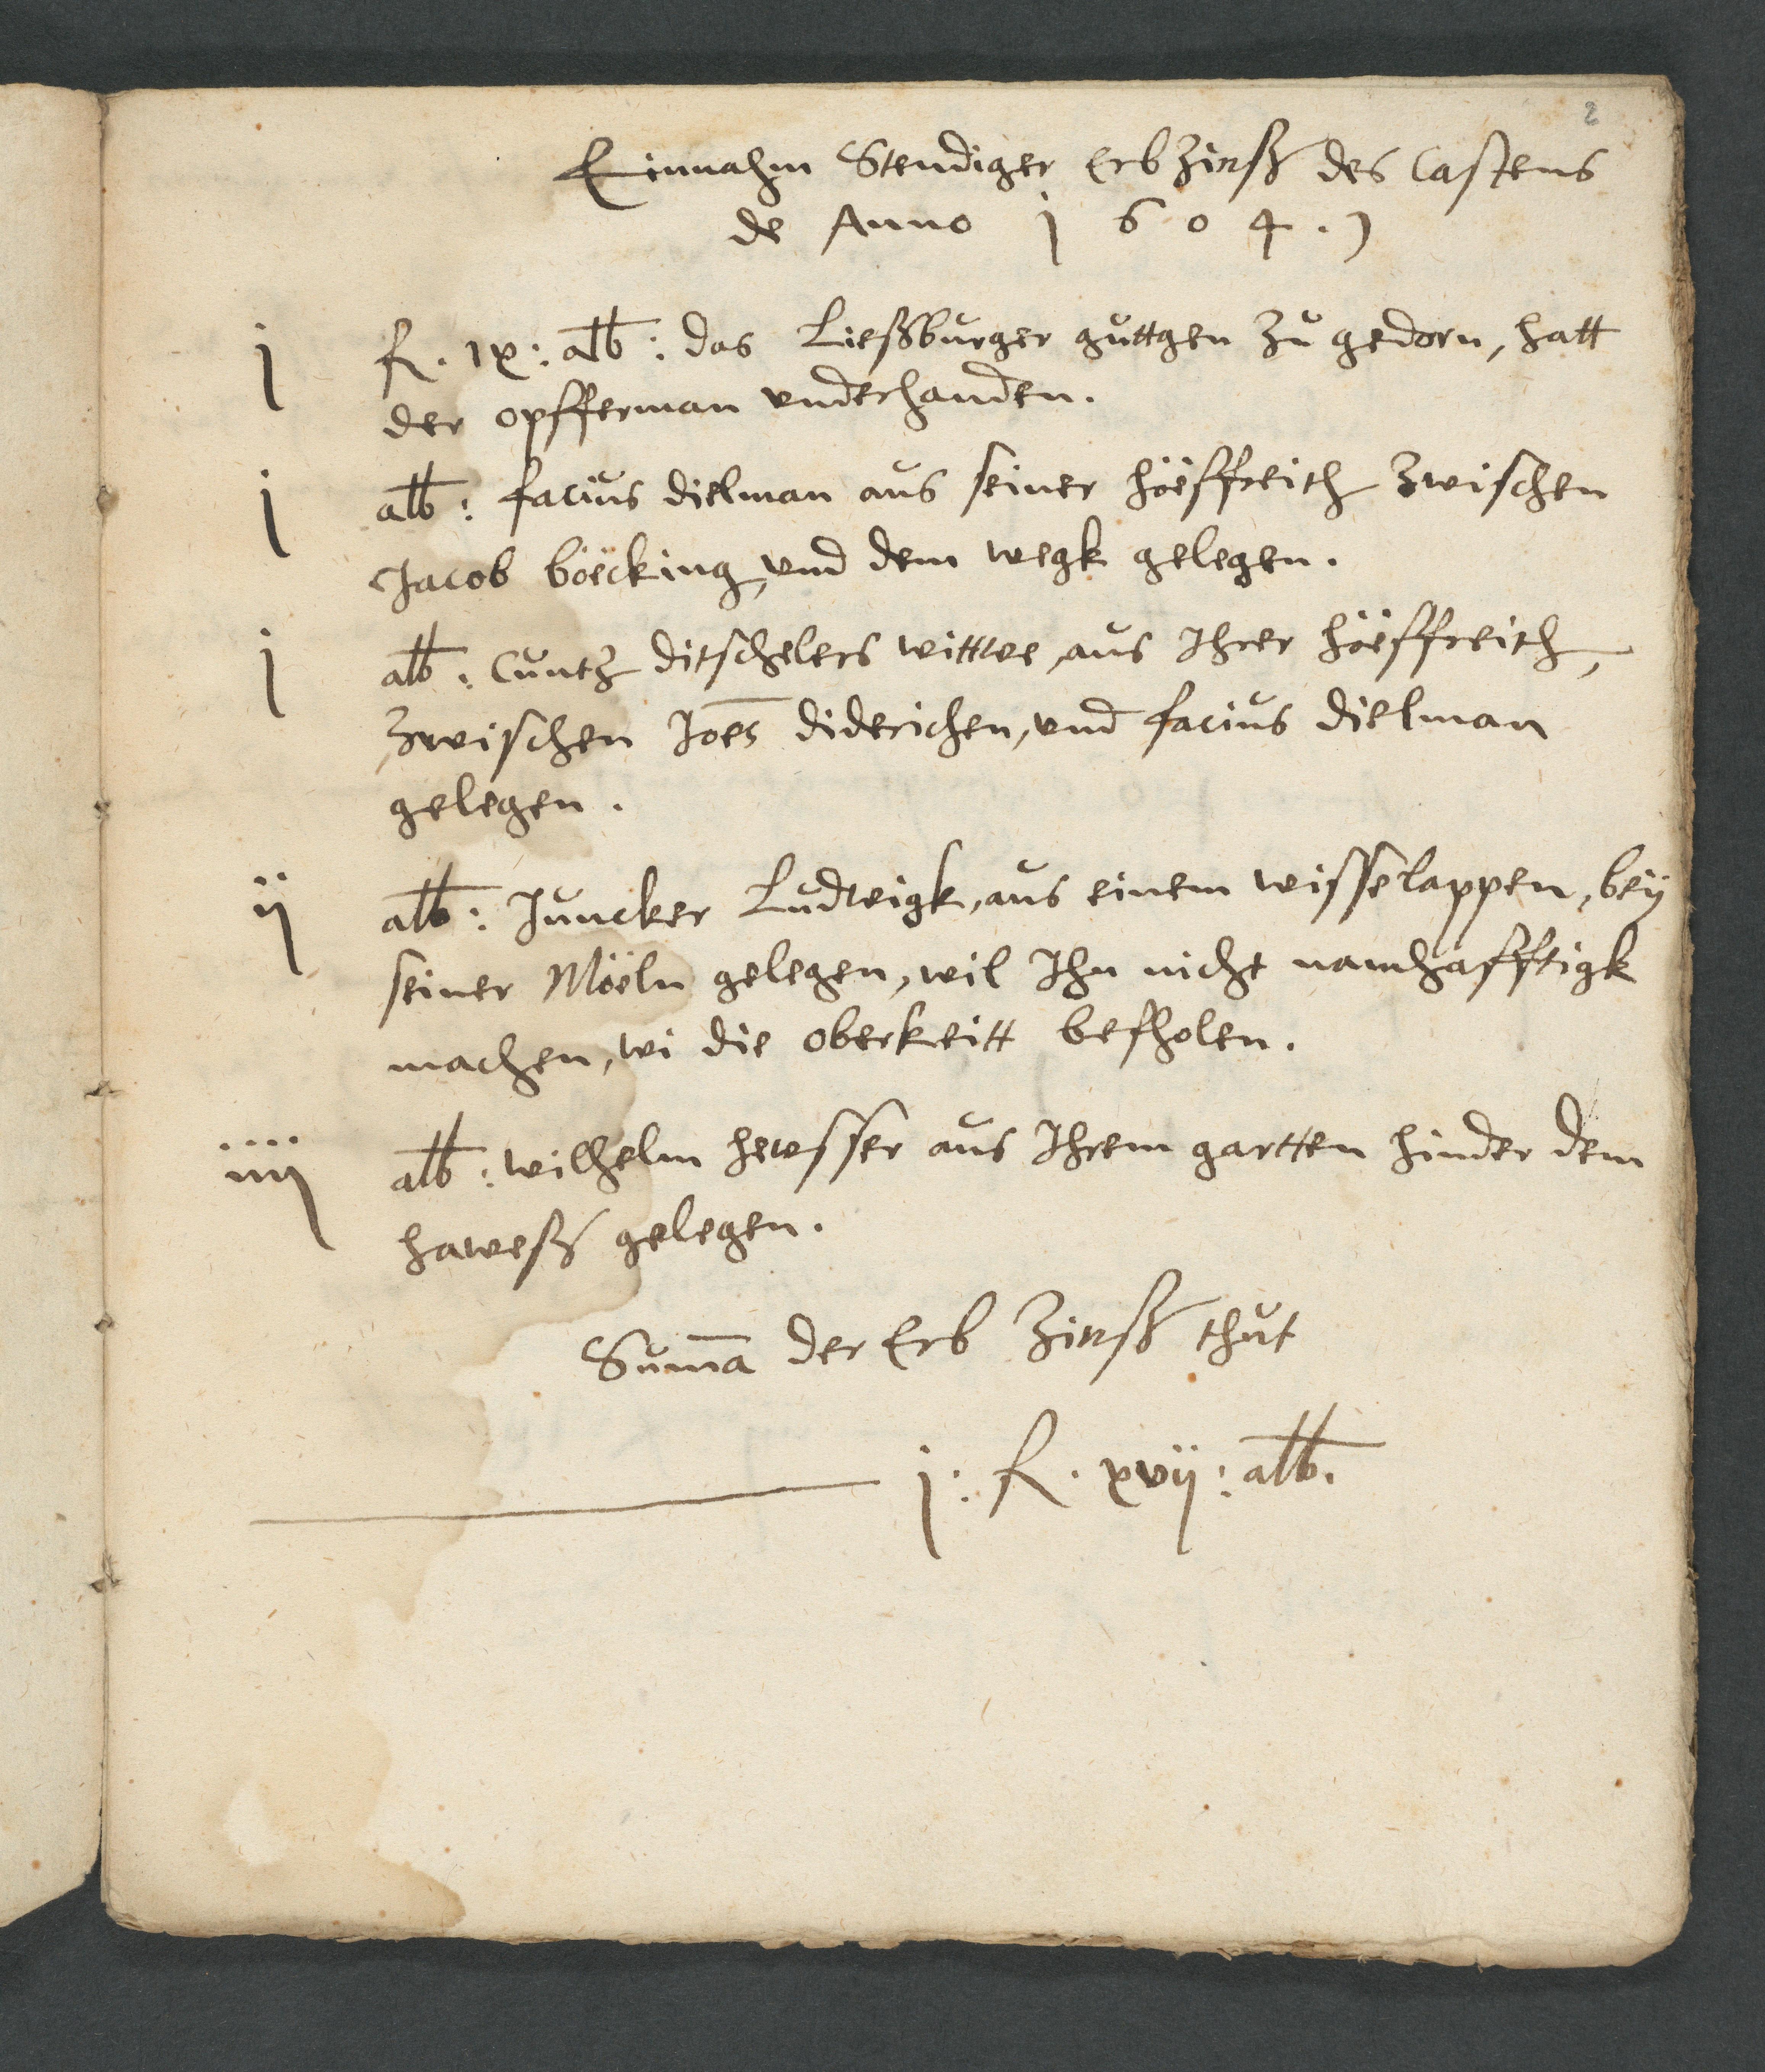 2
Einnahm Stendiger Erb Zinß des Castens
de Anno j 6 0 4 .
j fl. ix: alb: das Ließburger guttgen zu gedorn, hatt
der opfferman underhanden.
j alb: facius dielman aus seiner höeffreith zwischen
Jacob böecking, und dem wegk gelegen.
j alb: Cuntz ditschelers wittwe, aus Ihrer höeffreith,
zwischen Joēs diderichen, und facius dielman
gelegen.
ij alb: Juncker Ludweigk, aus einem wisselappen, beÿ
seiner Möeln gelegen, wil Ihn nicht namhafftigk
machen, wi die oberkeitt befholen.
iiij alb: wilhelm hewsser aus Ihrem gartten hinder dem
haweß gelegen.
Sum̄a der Erb Zinß thut
j: fl. xvij: alb.